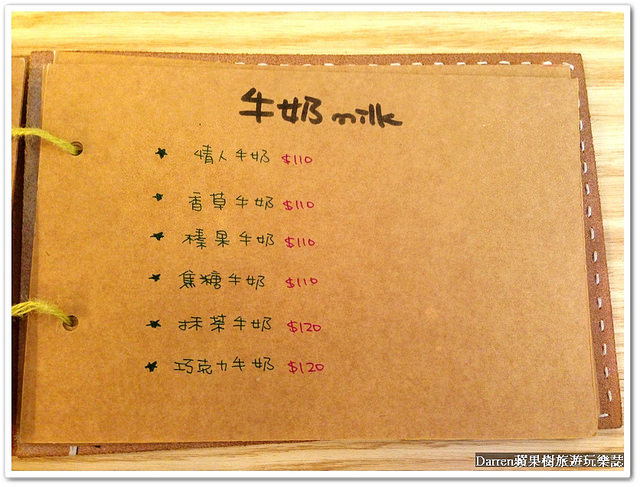 牛奶milk
★ 情人牛奶 $110
★ 香草牛奶 $110
★ 榛果牛奶 $110
★ 焦糖牛奶 $110
★ 抹茶牛奶 $120
★ 巧克力牛奶 $120
Darren蘋果樹旅遊玩樂誌